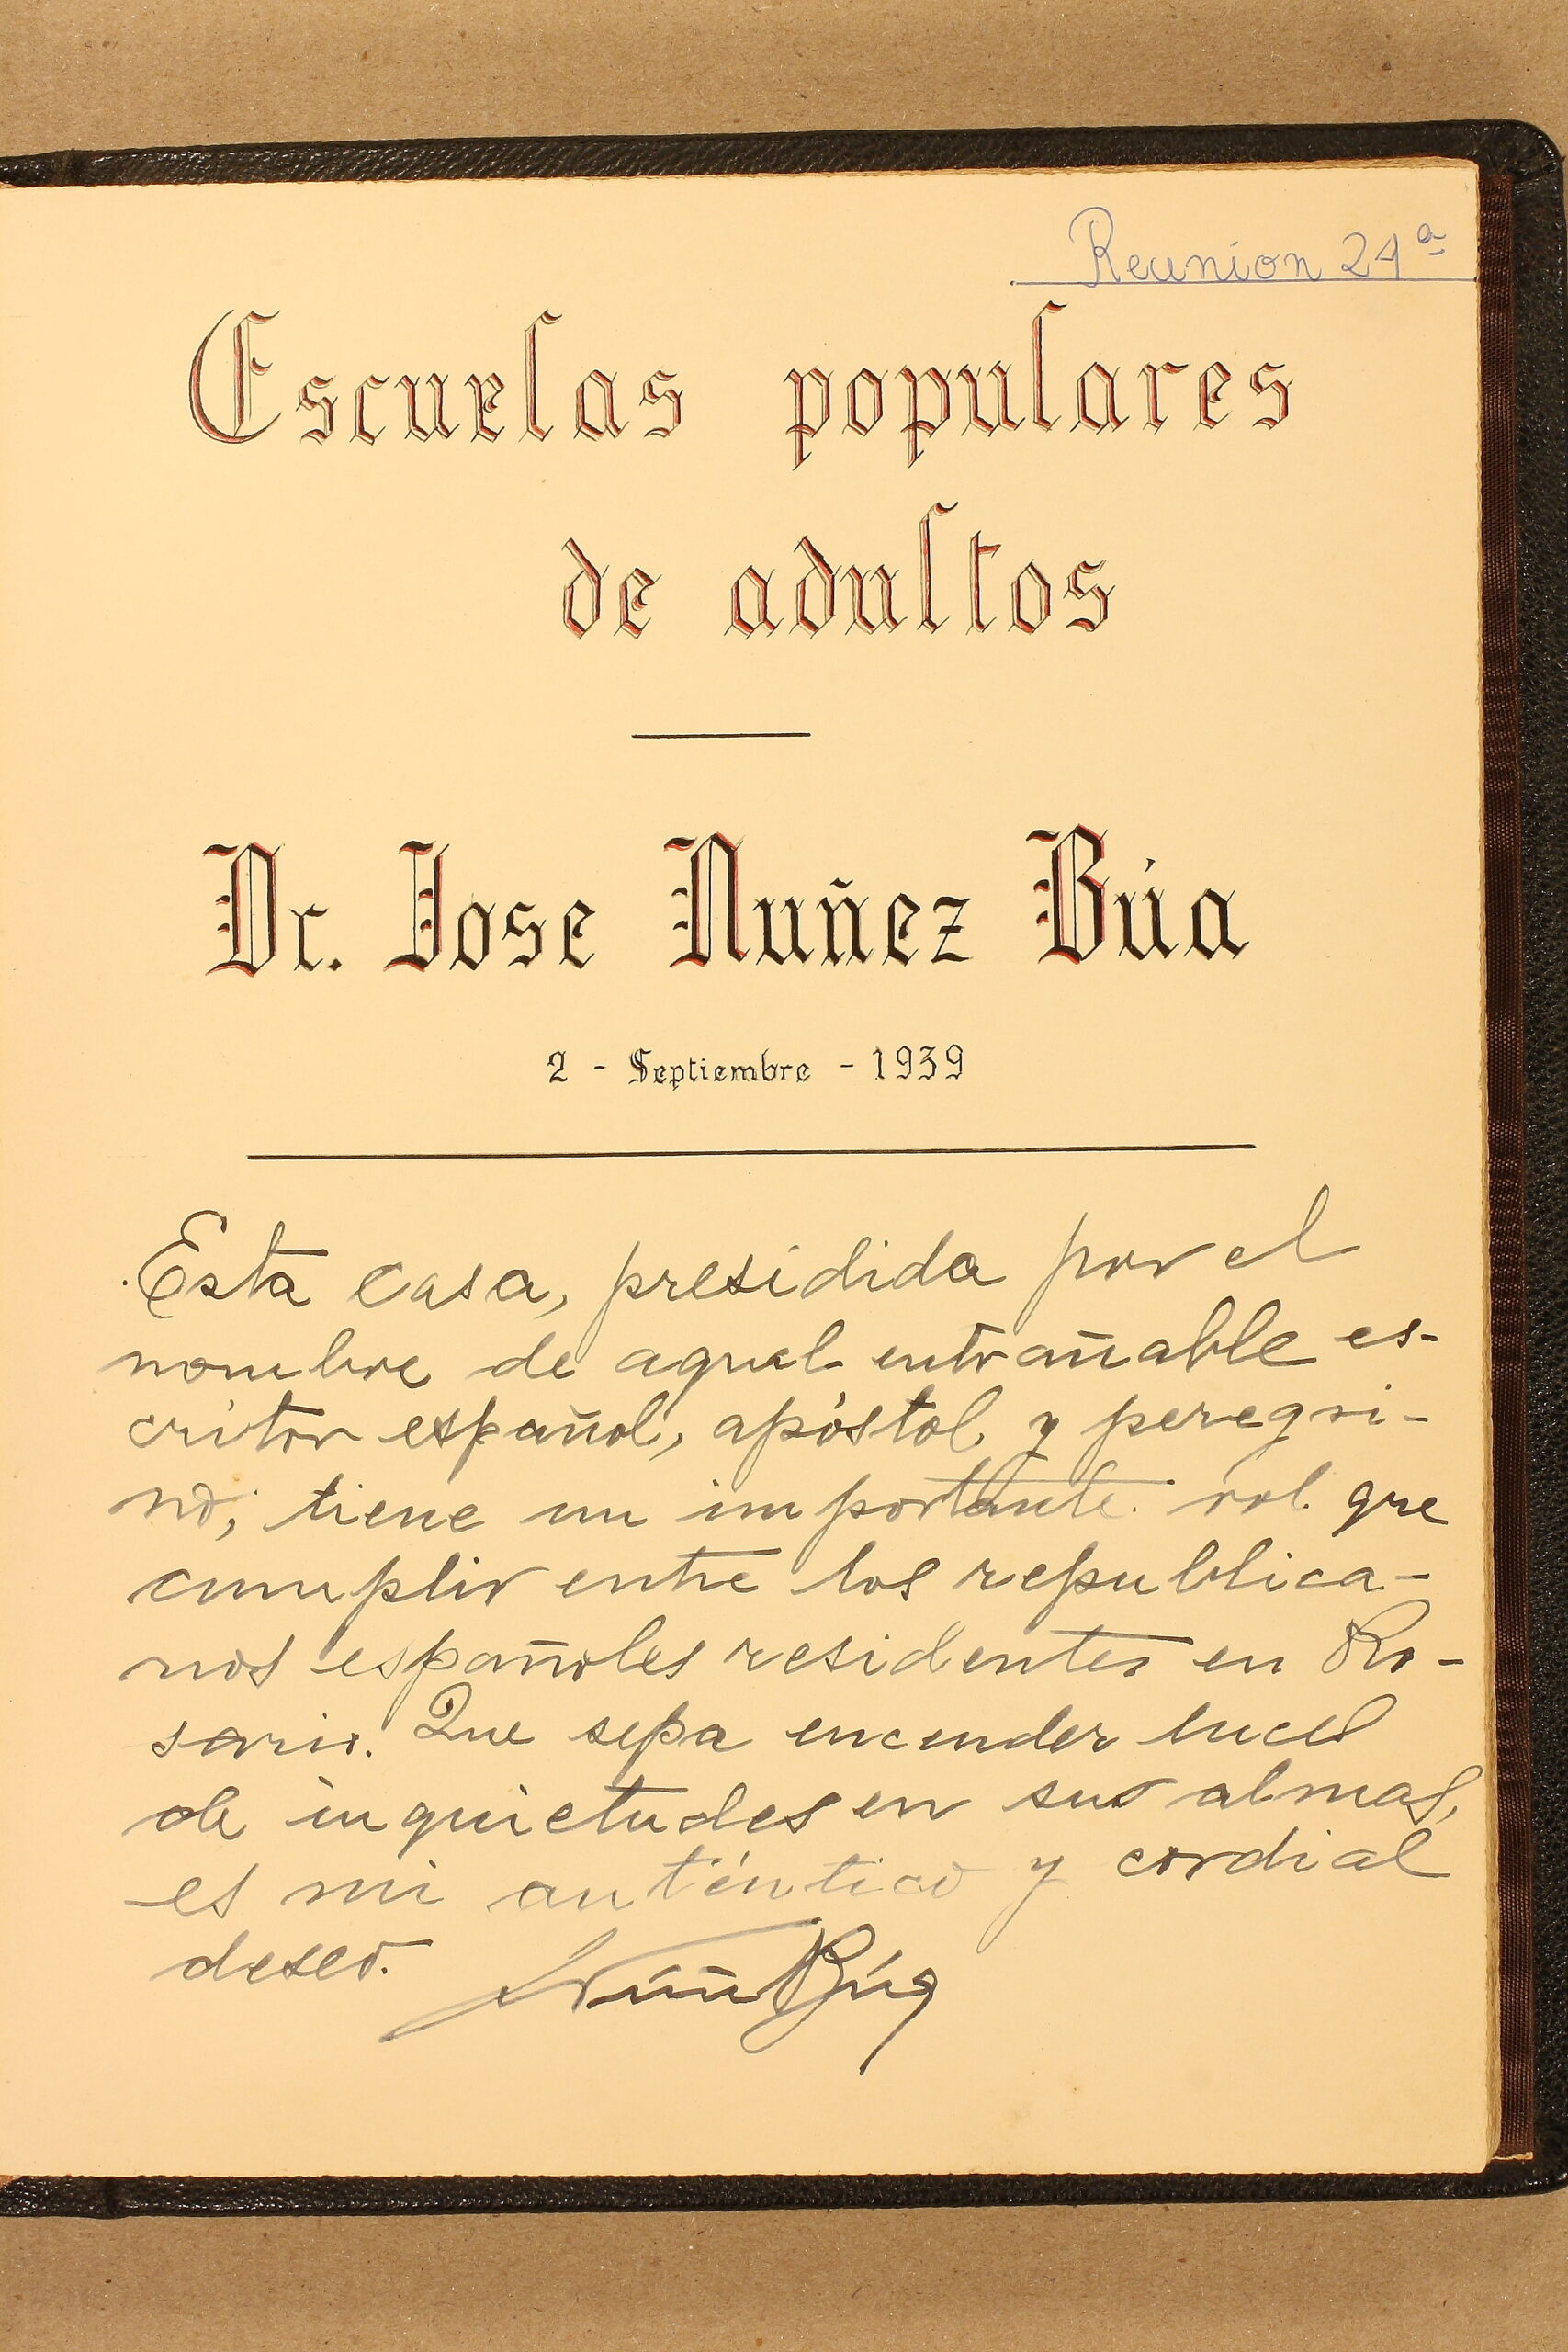 Reunion 24ª
Escuelas populares
de adultos
Dr. Jose Nuñez Búa
2 - Septiembre - 1939
Esta casa, presidida por el
nombre de aquel entrañable es-
critor español, apóstol y peregri-
no, tiene un importante rol que
cumplir entre los republica-
nos españoles residentes en Ro-
sario. Que sepa encender luces
de inquietudes en sus almas,
es mi auténtico y cordial
deseo. Núñ Búa